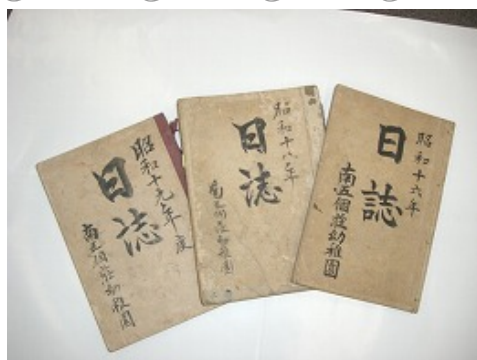 昭和十九年度
日誌
南五個荘幼稚園
昭和十八年
日誌
南五個荘幼稚園
昭和十六年
日誌
南五個荘幼稚園